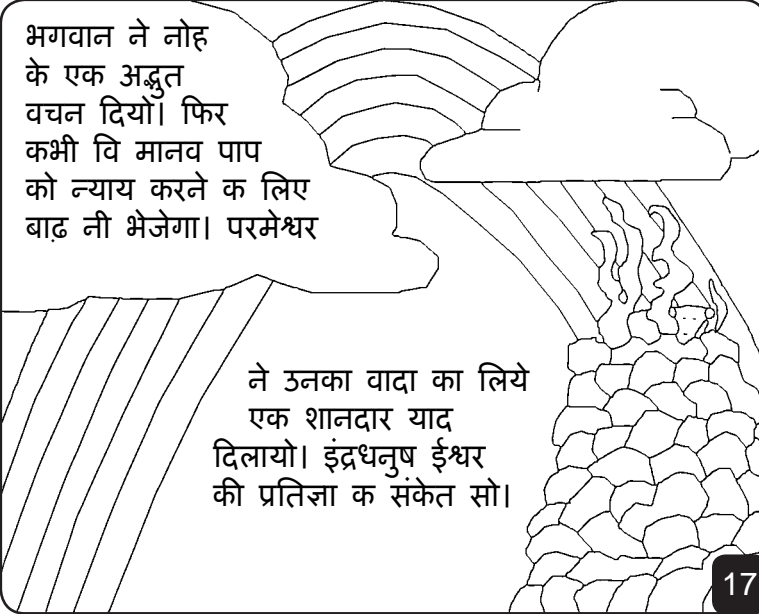 भगवान ने नोह
के एक अद्भुत
वचन दियो। फिर
कभी वि मानव पाप
को न्याय करने क लिए
बाढ़ नी भेजेगा। परमेश्वर
ने उनका वादा का लिये
एक शानदार याद
दिलायो। इंद्रधनुष ईश्वर
की प्रतिज्ञा क संकेत सो।
17